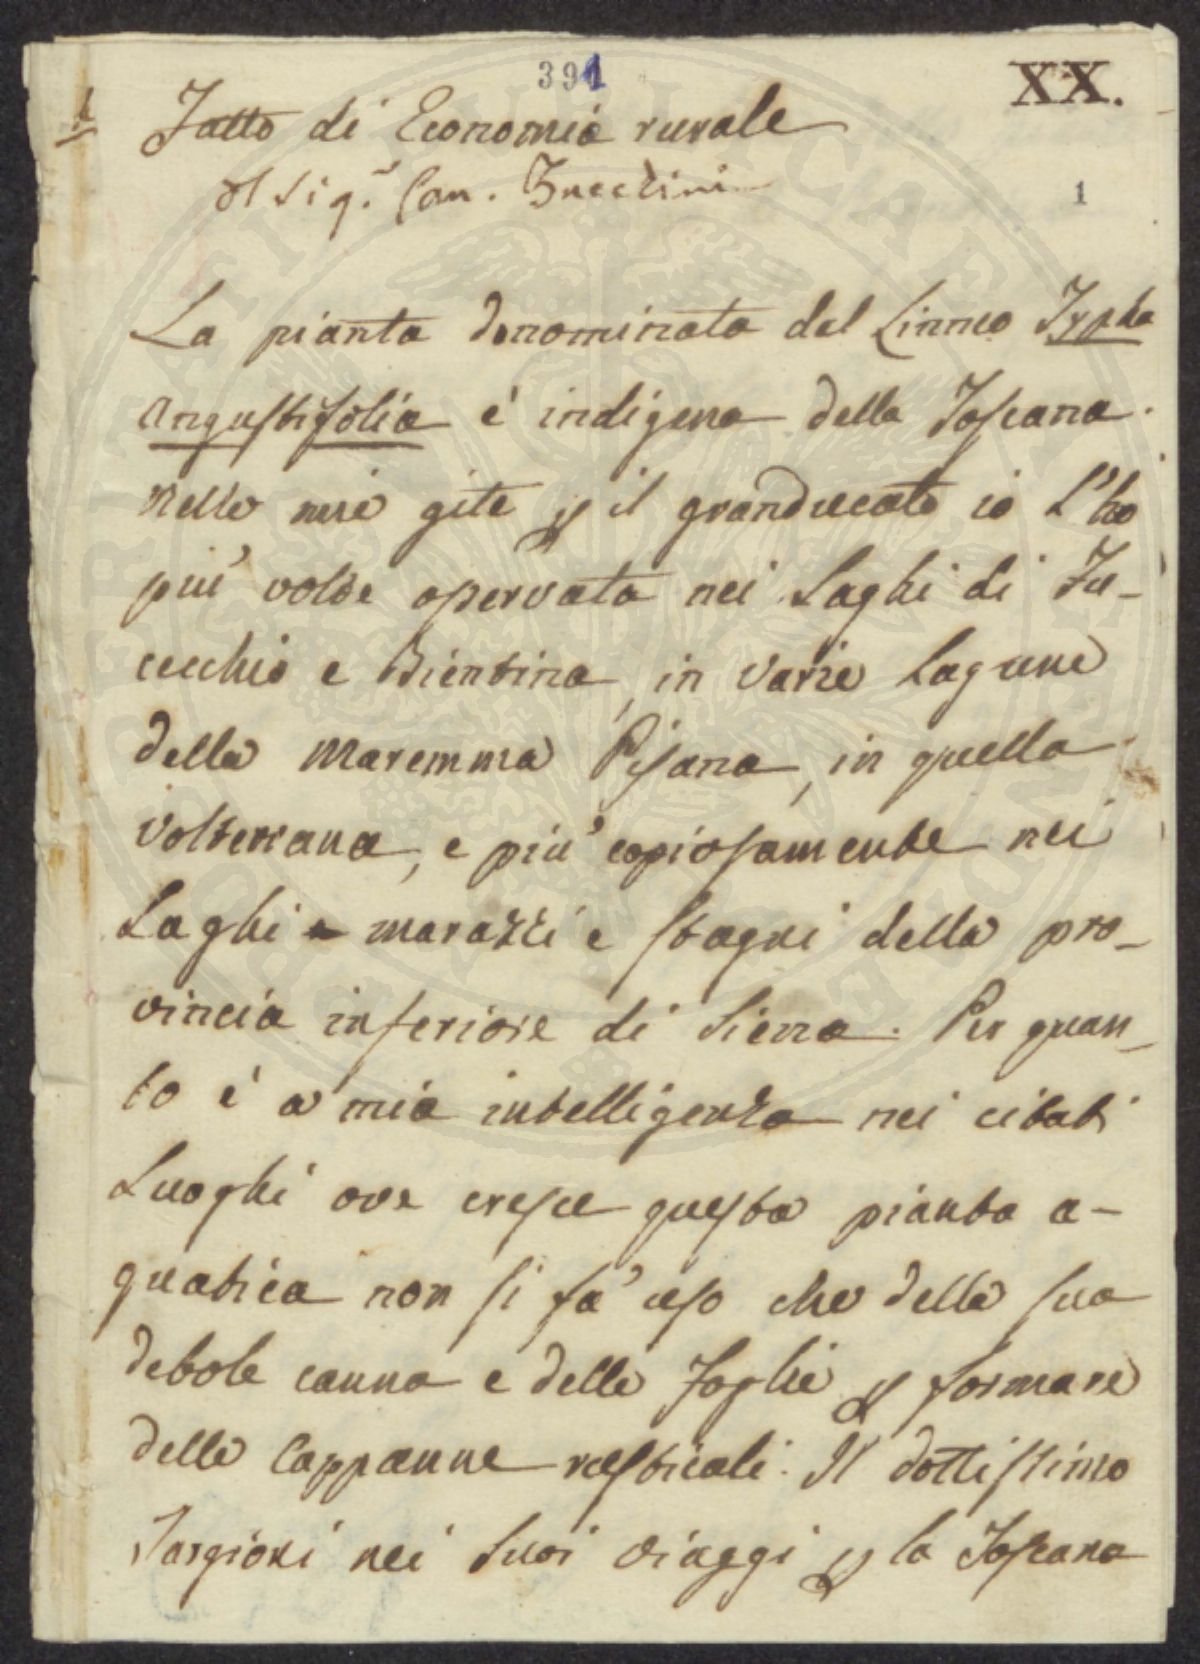 391
XX.
1
Fatto di Economia rurale
del Sig.r Can. Zucchini
1
La pianta denominata dal Linneo Typha
angustifolia è indigena della Toscana.
Nelle mie gite p il granducato io l'ho
più volte osservata nei Laghi di Fu-
cecchio e Bientina, in varie Lagune
della Maremma Pisana, in quella
volterrana, e più copiosamente nei
Laghi e marazzi e stagni della pro-
vincia inferiore di Siena. Per quan-
to è a mia intelligenza nei citati
Luoghi ove cresce questa pianta a-
quatica non si fà uso che della sua
debole canna e delle foglie p formare
delle Cappanne rusticali. Il dottissimo
Targioni nei suoi viaggi p la Toscana